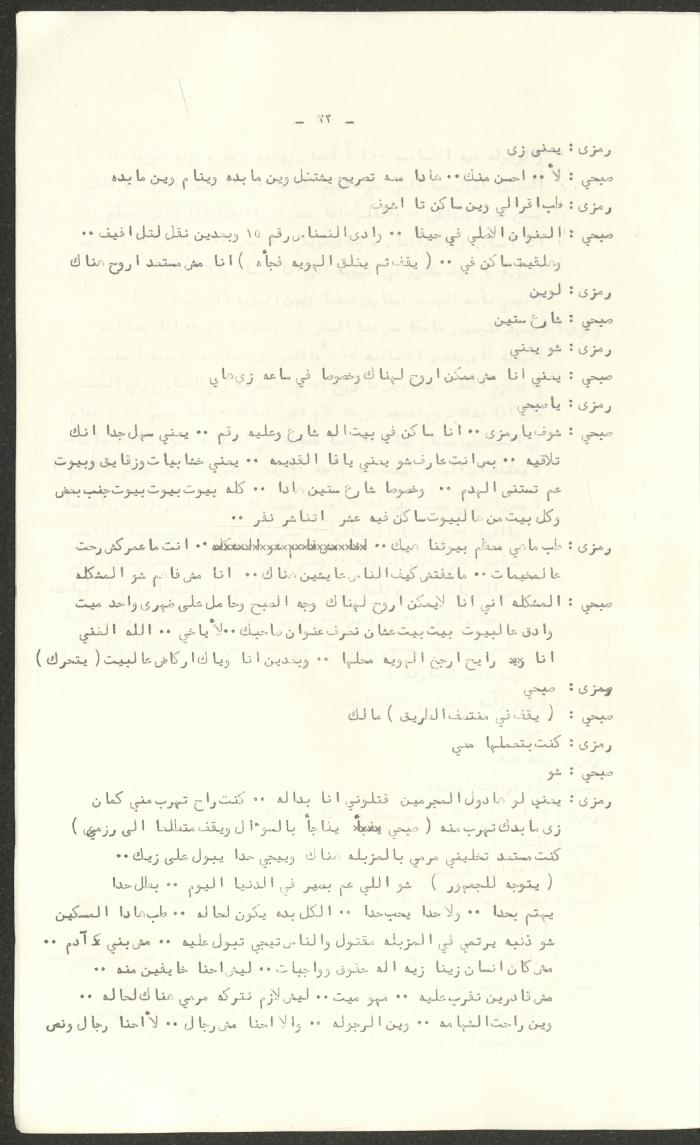 - ٢٣ -
رمزى : يعني زى
صبحي : لأ .. احسن منك .. هادا معه تصريح يشتغل وين ما بده وينام وين ما بده
رمزى : طب اقرا لي وين ساكن تا اشوف
صبحي : العنوان الاصلي في حيفا .. وادى النسناس رقم ١٥ وبعدين نقل لتل افيف ..
وهلقيت ساكن في .. ( يقف ثم يغلق الهويه فجأه ) انا مش مستعد اروح هناك
رمزى : لوين
صبحي : شارع ستين
رمزى : شو يعني
صبحي : يعني انا مش ممكن اروح لهناك وخصوصا في ساعه زى هاي
رمزى : يا صبحي
صبحي : شوف يا رمزى .. انا ساكن في بيت اله شارع وعليه رقم .. يعني سهل جدا انك
تلاقيه .. بس انت عارف شو يعني يافا القديمه .. يعني خشابيات وزقايق وبيوت
عم تستنى الهدم .. وخصوصا شارع ستين هادا .. كله بيوت بيوت بيوت جنب بعض
وكل بيت من هالبيوت ساكن فيه عشر اتناشر نفر ..
رمزى : طب ما هي معظم بيوتنا هيك .. .. انت ما عمركش رحت
عالمخيمات .. ما شفتش كيف الناس عايشين هناك .. انا مش فاهم شو المشكله
صبحي : المشكله اني انا لايمكن اروح لهناك وجه الصبح وحامل على ضهرى واحد ميت
وادق عالبيوت بيت بيت عشان نعرف عنوان صاحبك .. لأ ياخي .. الله الغني
انا رايح ارجع الهويه محلها .. وبعدين انا وياك اركاض عالبيت ( يتحرك )
رمزى : صبحي
صبحي : ( يقف في منتصف الطريق ) مالك
رمزى : كنت بتعملها معي
صبحي : شو
رمزى : يعني لو هادول المجرمين قتلوني انا بداله .. كنت راح تهرب مني كمان
زى ما بدك تهرب منه ( صبحي يفاجأ بالسؤال ويقف متطلعا الى رزمي )
كنت مستعد تخليني مرمي بالمزبله هناك وييجي حدا يبول علي زيك ..
( يتوجه للجمهور ) شو اللي عم بصير في الدنيا اليوم .. بطل حدا
يهتم بحدا .. ولا حدا يحب حدا .. الكل بده يكون لحاله .. طب هادا المسكين
شو ذنبه يرتمي في المزبله مقتول والناس تيجي تبول عليه .. مش بني آدم ..
مش كان انسان زينا زيه اله حقوق وواجبات .. ليش احنا خايفين منه ..
مش قادرين نقرب عليه .. مهو ميت .. ليش لازم نتركه مرمي هناك لحاله ..
وين راحت الشهامه .. وين الرجوله .. والا احنا مش رجال .. لأ احنا رجال ونص